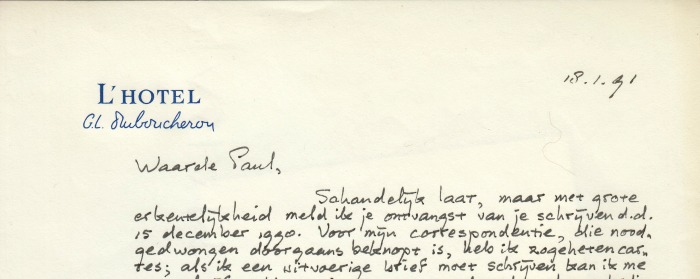 18.1.91
L'HOTEL
G.L. Duboucheron
Waarde Paul,
Schandelijk laat, maar met grote
erkentelijkheid meld ik je ontvangst van je schrijven d.d.
15 december 1990. Voor mijn correspondentie, die nood-
gedwongen doorgaans beknopt is, heb ik zogeheten car-
tes; als ik een uitvoerige brief moet schrijven kan ik me